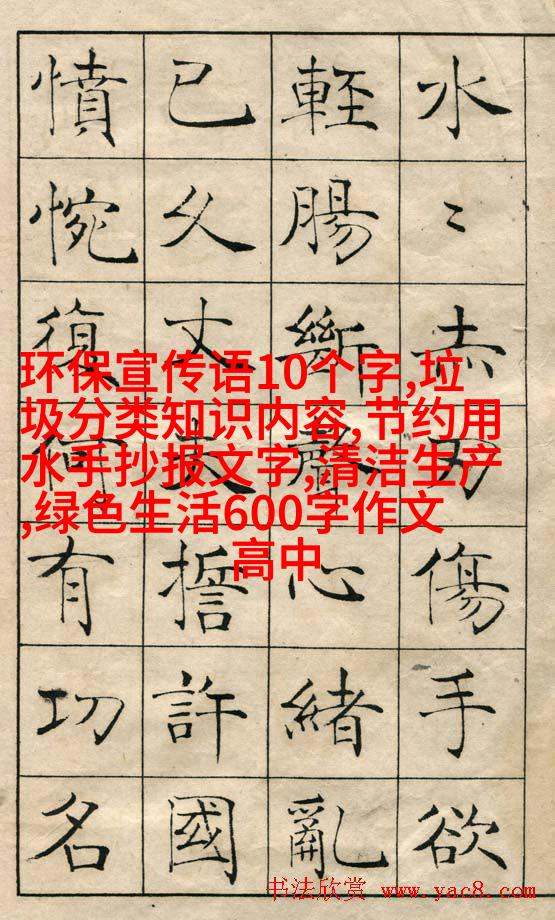 水〻赤刃傷手欲
輕腸斷聲心緒亂
已久丈夫誓許國
憤惋復何有功名
环保宣传语10个字,垃
圾分类知识内容,节约用
水手抄报文字,清洁生产
,绿色生活600字作文
高中
书法欣赏 www.yac8.com